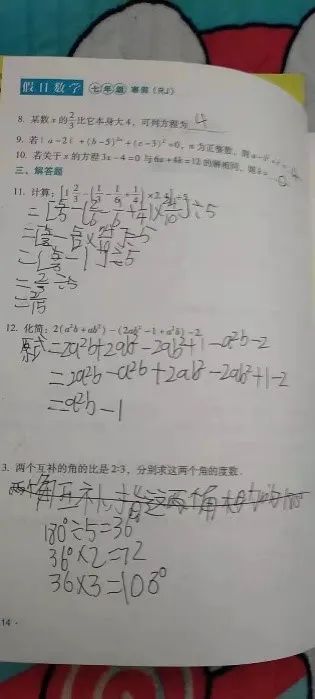 假日数学 七年级 寒假(RJ)
8. 某数x的2/3比它本身大4,可列方程为 4
9. 若|a-2|+(b-5)²ⁿ+(c-3)²=0,n为正整数,则a-b+c=
10. 若关于x的方程3x-4=0与6x+4k=12的解相同,则k= 0
三、解答题
11. 计算:[1 2/3-(1/3-1/6+1/4)×2.4]÷5
÷5
÷5
÷5
=2/3÷5
=2/15
12. 化简:2(a²b+ab²)-(2ab²-1+a²b)-2
原式=2a²b+2ab²-2ab²+1-a²b-2
=2a²b-a²b+2ab²-2ab²+1-2
=a²b-1
3. 两个互补的角的比是2:3,分别求这两个角的度数.
180°÷5=36°
36°×2=72
36×3=108°
14·